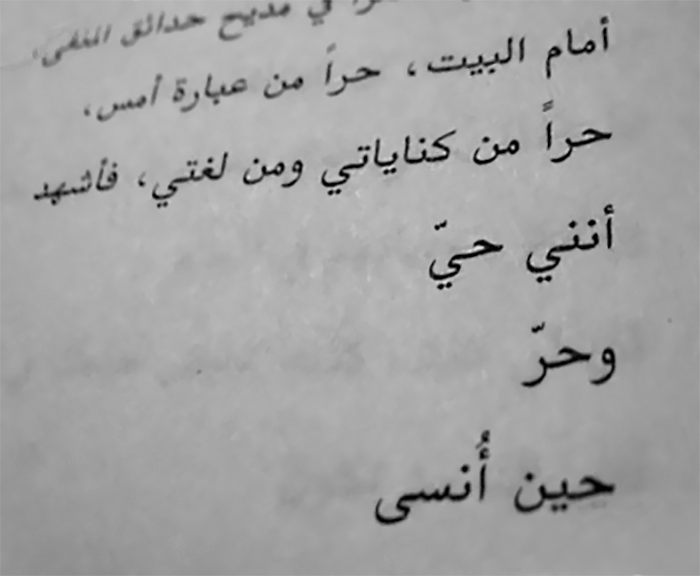 في مديح حدائق المنفى،
أمام البيت، حراً من عبارة أمس،
حراً من كناياتي ومن لغتي، فأشهد
أنني حيّ
وحرّ
حين أُنسى